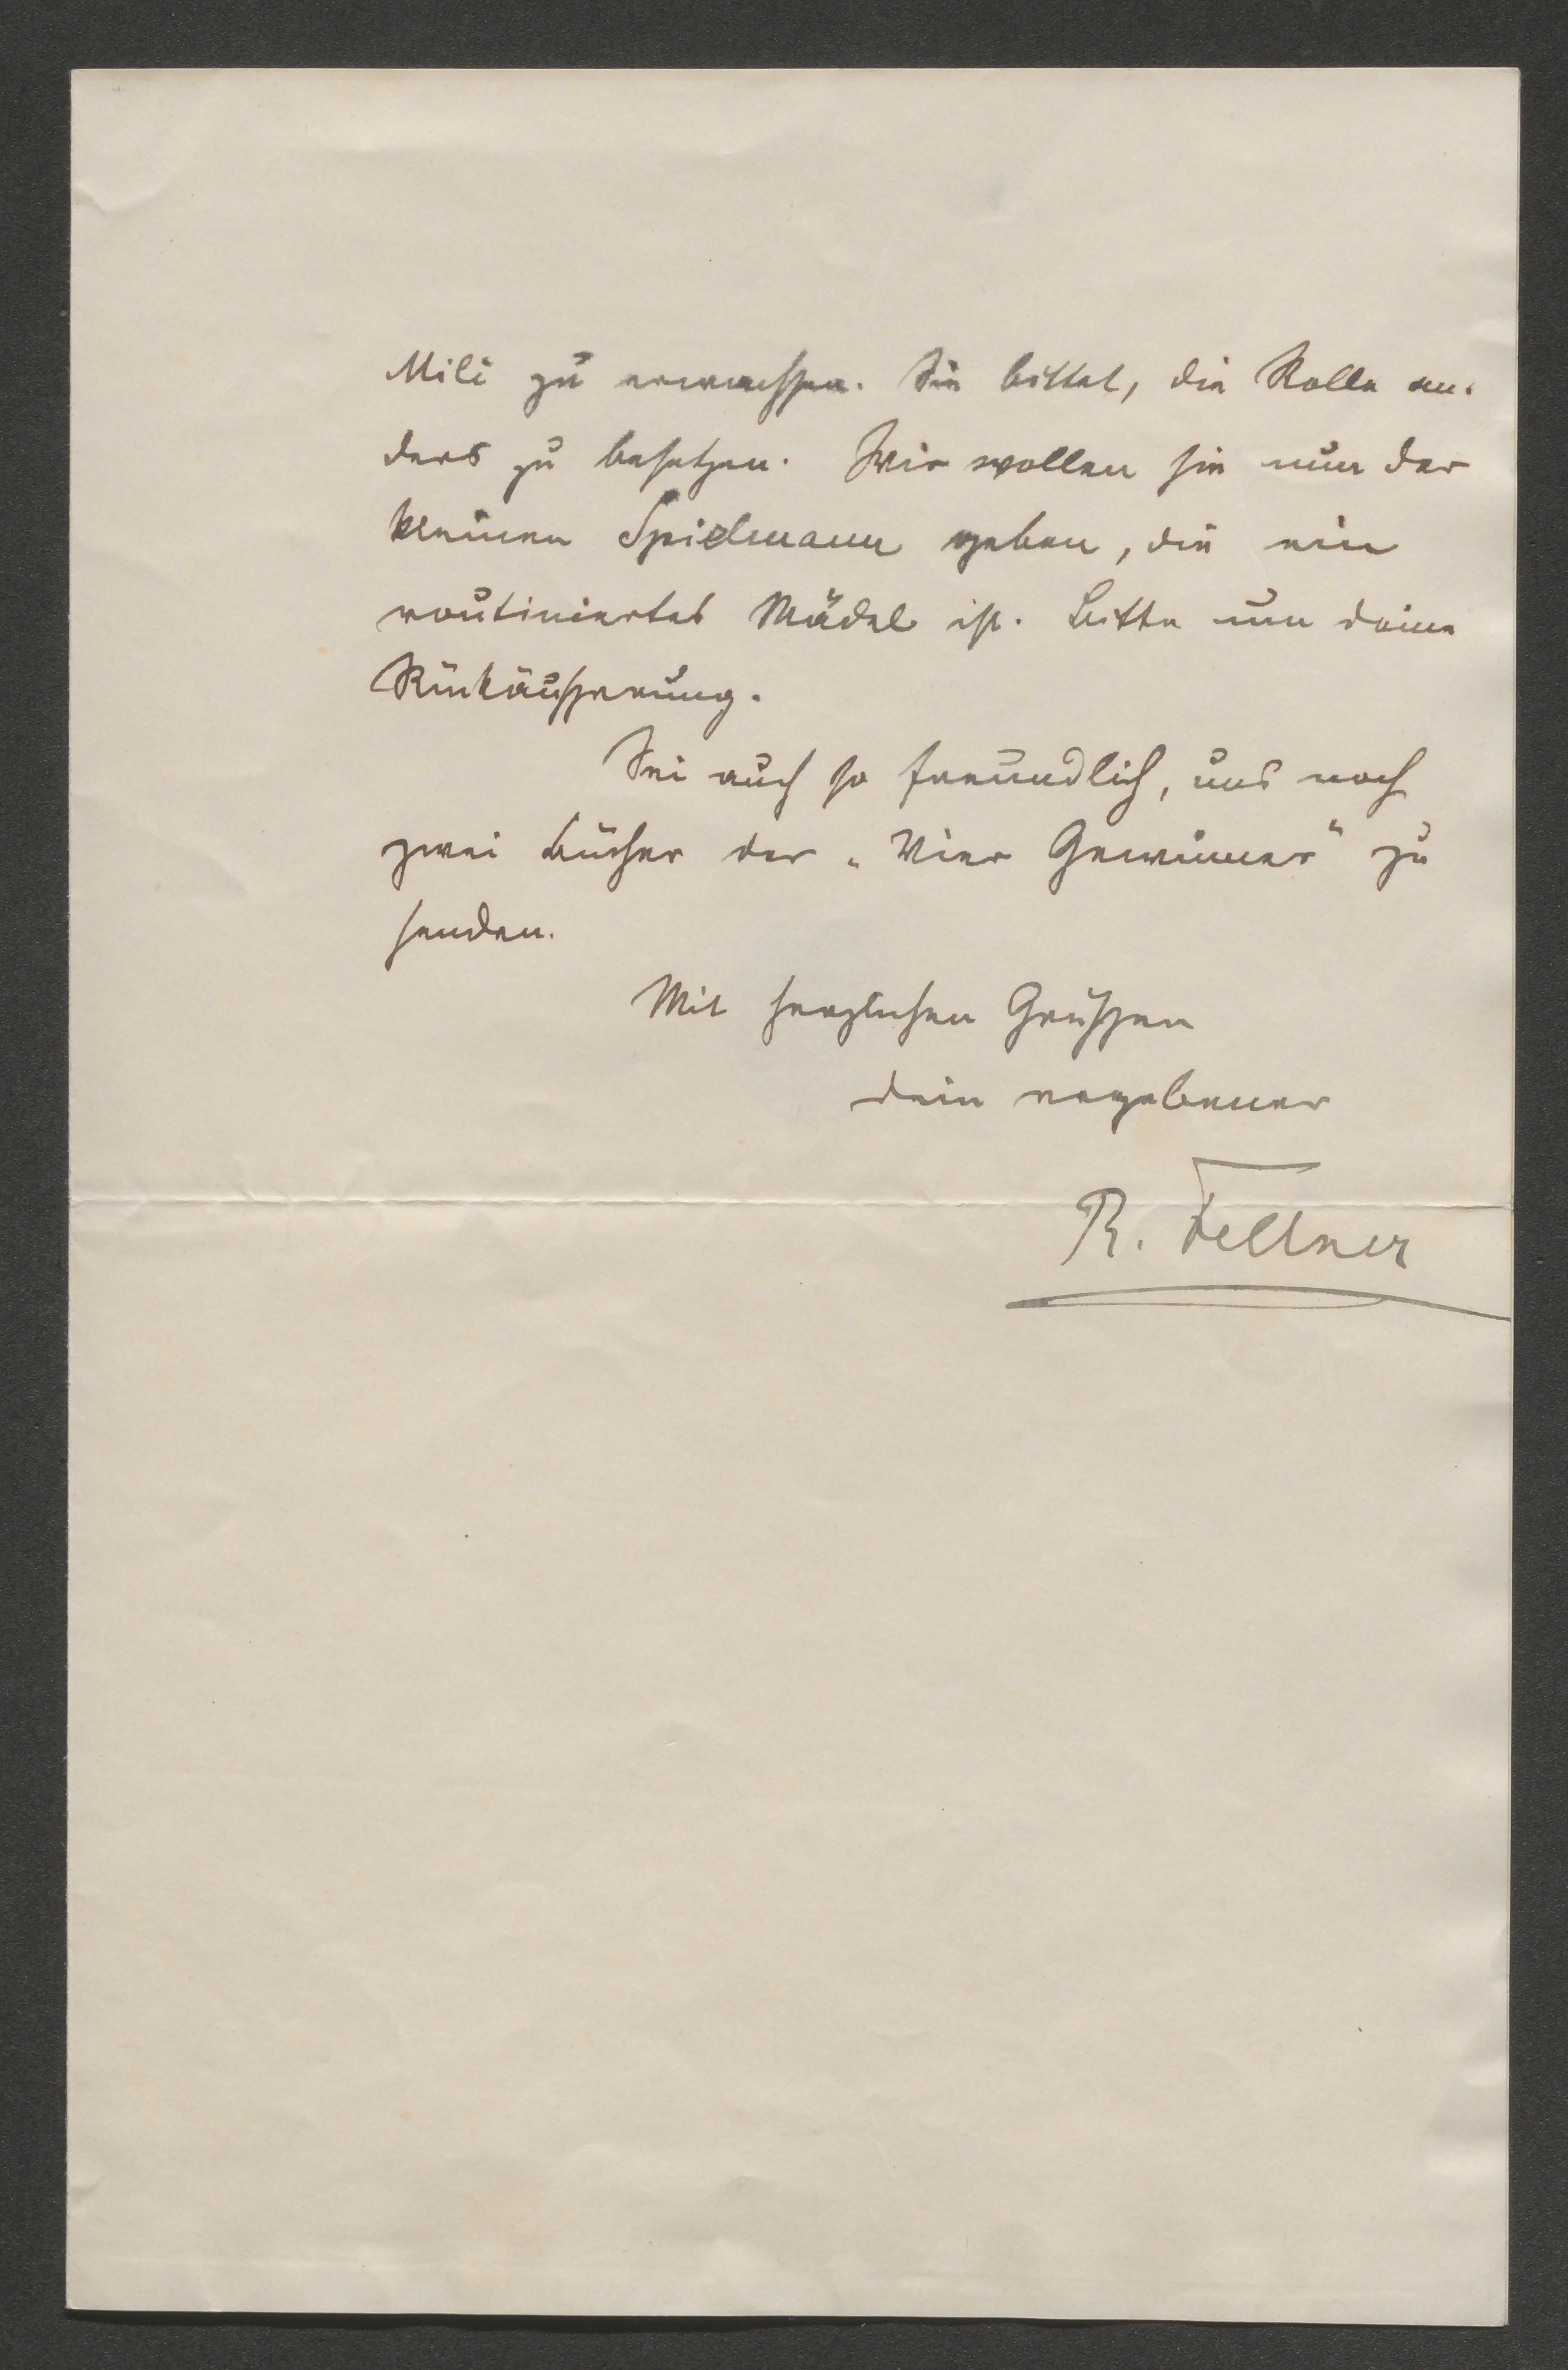 Mili zu erwachsen. Sie bittet, die Rolle an-
ders zu besetzen. Wir wollen sie nun der
kleinen Spielmann geben, die ein
routiniertes Mädel ist. Bitte um deine
Rückäußerung.
Sei auch so freundlich, uns noch
zwei Bücher der „Vier Gewinner" zu
senden.
Mit herzlichen Grüßen
dein ergebener
R. Fellner